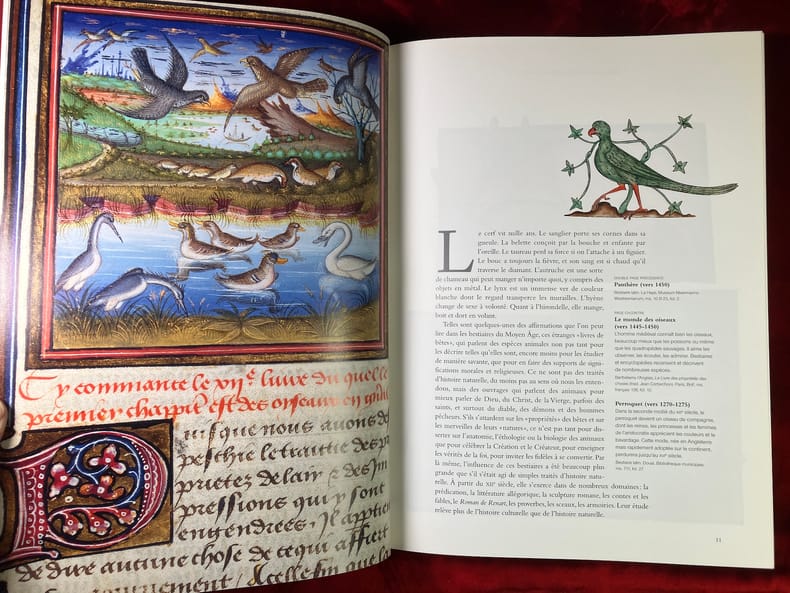 Cy commance le xije livre du quel le
premier chappitre est des oyseaux en
Puis que nous avons de
pesche le traittie des
prietez de l air & des Im
pressions qui y sont
engendrees. Il appt
de dire aucune chose de ce qui affiert
Acelle fin que la
Le cerf vit mille ans. Le sanglier porte ses cornes dans sa
gueule. La belette conçoit par la bouche et enfante par
l'oreille. Le taureau perd sa force si on l'attache à un figuier.
Le bouc a toujours la fièvre, et son sang est si chaud qu'il
traverse le diamant. L'autruche est une sorte
de chameau qui peut manger n'importe quoi, y compris des
objets en métal. Le lynx est un immense ver de couleur
blanche dont le regard transperce les murailles. L'hyène
change de sexe à volonté. Quant à l'hirondelle, elle mange,
boit et dort en volant.
Telles sont quelques-unes des affirmations que l'on peut
lire dans les bestiaires du Moyen Âge, ces étranges «livres de
bêtes», qui parlent des espèces animales non pas tant pour
les décrire telles qu'elles sont, encore moins pour les étudier
de manière savante, que pour en faire des supports de signi-
fications morales et religieuses. Ce ne sont pas des traités
d'histoire naturelle, du moins pas au sens où nous les enten-
dons, mais des ouvrages qui parlent des animaux pour
mieux parler de Dieu, du Christ, de la Vierge, parfois des
saints, et surtout du diable, des démons et des hommes
pécheurs. S'ils s'attardent sur les «propriétés» des bêtes et sur
les merveilles de leurs «natures», ce n'est pas tant pour dis-
serter sur l'anatomie, l'éthologie ou la biologie des animaux
que pour célébrer la Création et le Créateur, pour enseigner
les vérités de la foi, pour inviter les fidèles à se convertir. Par
là même, l'influence de ces bestiaires a été beaucoup plus
grande que s'il s'était agi de simples traités d'histoire natu-
relle. À partir du XIIe siècle, elle s'exerce dans de nombreux domaines : la
prédication, la littérature allégorique, la sculpture romane, les contes et les
fables, le Roman de Renart, les proverbes, les sceaux, les armoiries. Leur étude
relève plus de l'histoire culturelle que de l'histoire naturelle.
DOUBLE PAGE PRÉCÉDENTE
Panthère (vers 1450)
Bestiaire latin. La Haye, Museum Meermanno-
Westreenianum, ms. 10 B 25, fol. 3.
PAGE CI-CONTRE
Le monde des oiseaux
(vers 1445-1450)
L'homme médiéval connaît bien les oiseaux,
beaucoup mieux que les poissons ou même
que les quadrupèdes sauvages. Il aime les
observer, les écouter, les admirer. Bestiaires
et encyclopédies recensent et décrivent
de nombreuses espèces.
Barthélemy l'Anglais, Le Livre des propriétés des
choses (trad. Jean Corbechon). Paris, BnF, ms.
français 136, fol. 12.
Perroquet (vers 1270-1275)
Dans la seconde moitié du XIIIe siècle, le
perroquet devient un oiseau de compagnie,
dont les reines, les princesses et les femmes
de l'aristocratie apprécient les couleurs et le
bavardage. Cette mode, née en Angleterre
mais rapidement adoptée sur le continent,
perdurera jusqu'au XVIIe siècle.
Bestiaire latin. Douai, Bibliothèque municipale,
ms. 711, fol. 27.
11